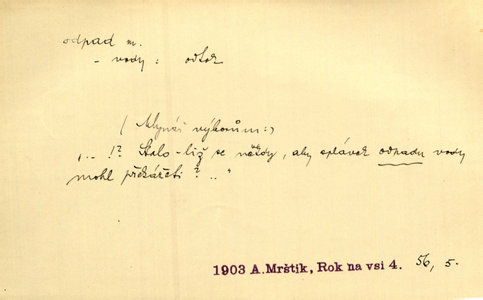 odpad m.
- vody : odtok
(Mlynář výborům:)
„.. !? Stalo-liž se někdy, aby splávek odpadu vody
mohl překážeti ? .. "
1903 A.Mrštík, Rok na vsi 4. 56, 5.